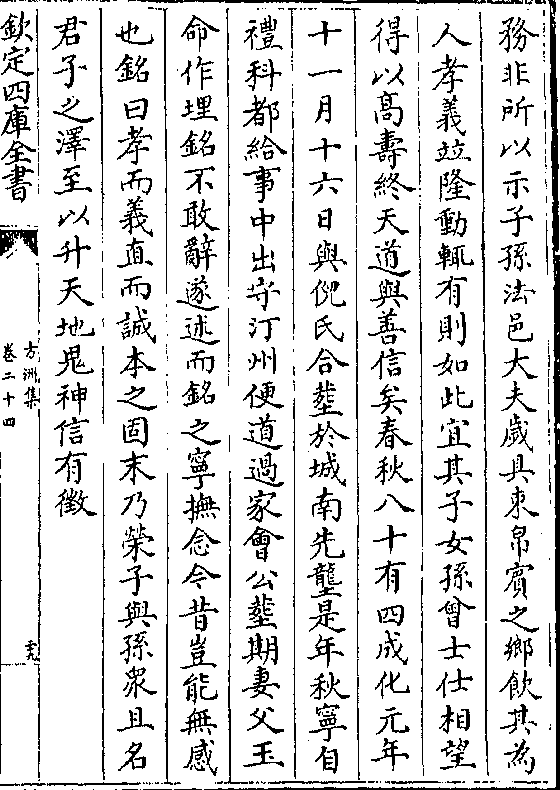 務非所以示子孫法邑大夫歲具束帛賓之鄉飲其為
人孝義竝隆動輒有則如此宜其子女孫曾士仕相望
得以髙壽終天道與善信矣春秋八十有四成化元年
十一月十六日與倪氏合塟於城南先壟是年秋寧自
禮科都給事中出守汀州便道過家會公塟期妻父玉
命作埋銘不敢辭遂述而銘之寧撫念今昔豈能無感
也銘曰孝而義直而誠本之固末乃榮子與孫衆且名
君子之澤至以升天地鬼神信有徴
欽定四庫全書
方洲集
卷二十四